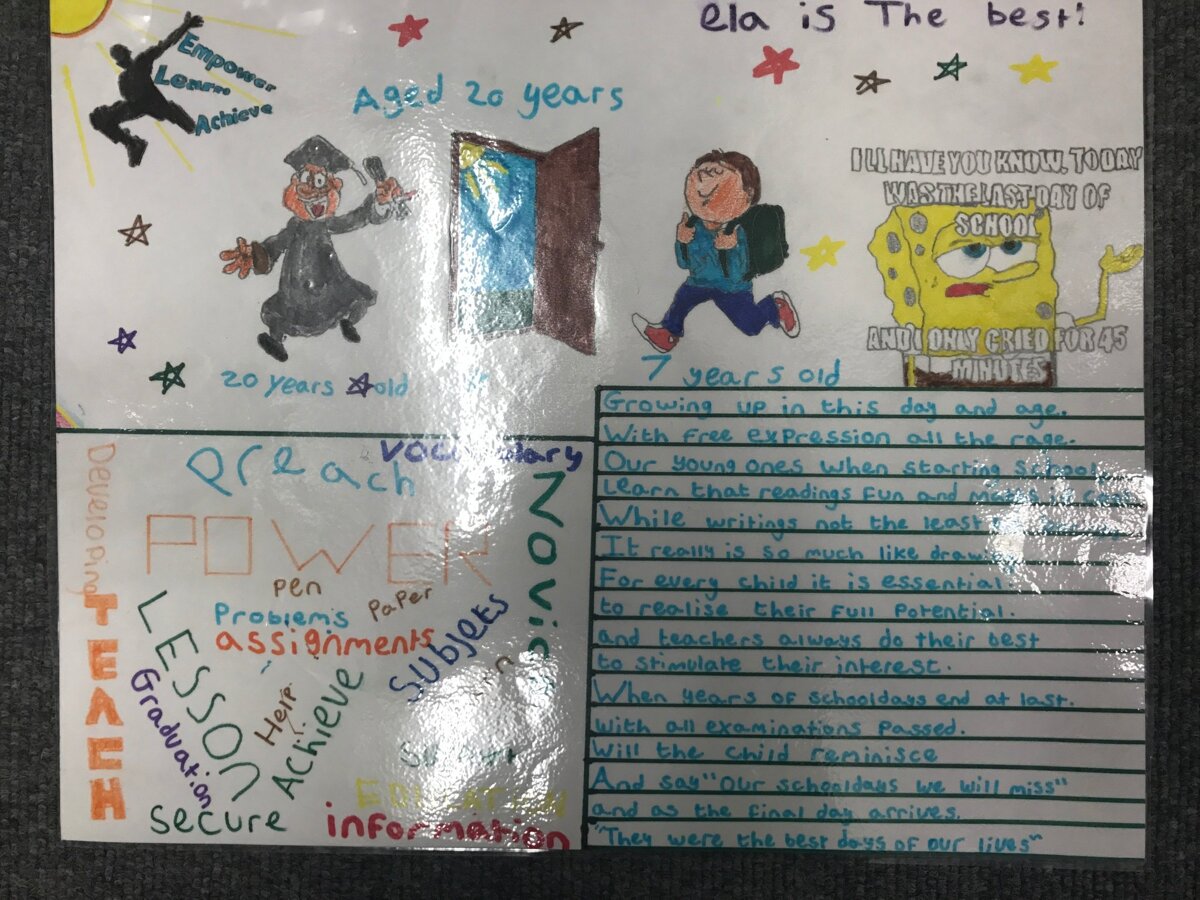 ela is The best!
Empower
Learn
Achieve
Aged 20 years
I LL HAVE YOU KNOW, TODAY
WAS THE LAST DAY OF
SCHOOL
AND I ONLY CRIED FOR 45
MINUTES
20 years old
7 years old
Developing
TEACH
preach
vocabulary
POWER
Novice
pen
paper
Problems
assignments
subjets
LESSON
Graduation
Help
Achieve
secure
EDUCATION
information
Growing up in this day and age.
With free expression all the rage.
Our young ones when starting school
Learn that readings fun and
While writings not the least
It really is so much like
For every child it is essential.
to realise their full potential.
and teachers always do their best
to stimulate their interest.
When years of schooldays end at last.
with all examinations passed.
Will the child reminisce
And say "Our schooldays we will miss"
and as the final day arrives.
"They were the best days of our lives"